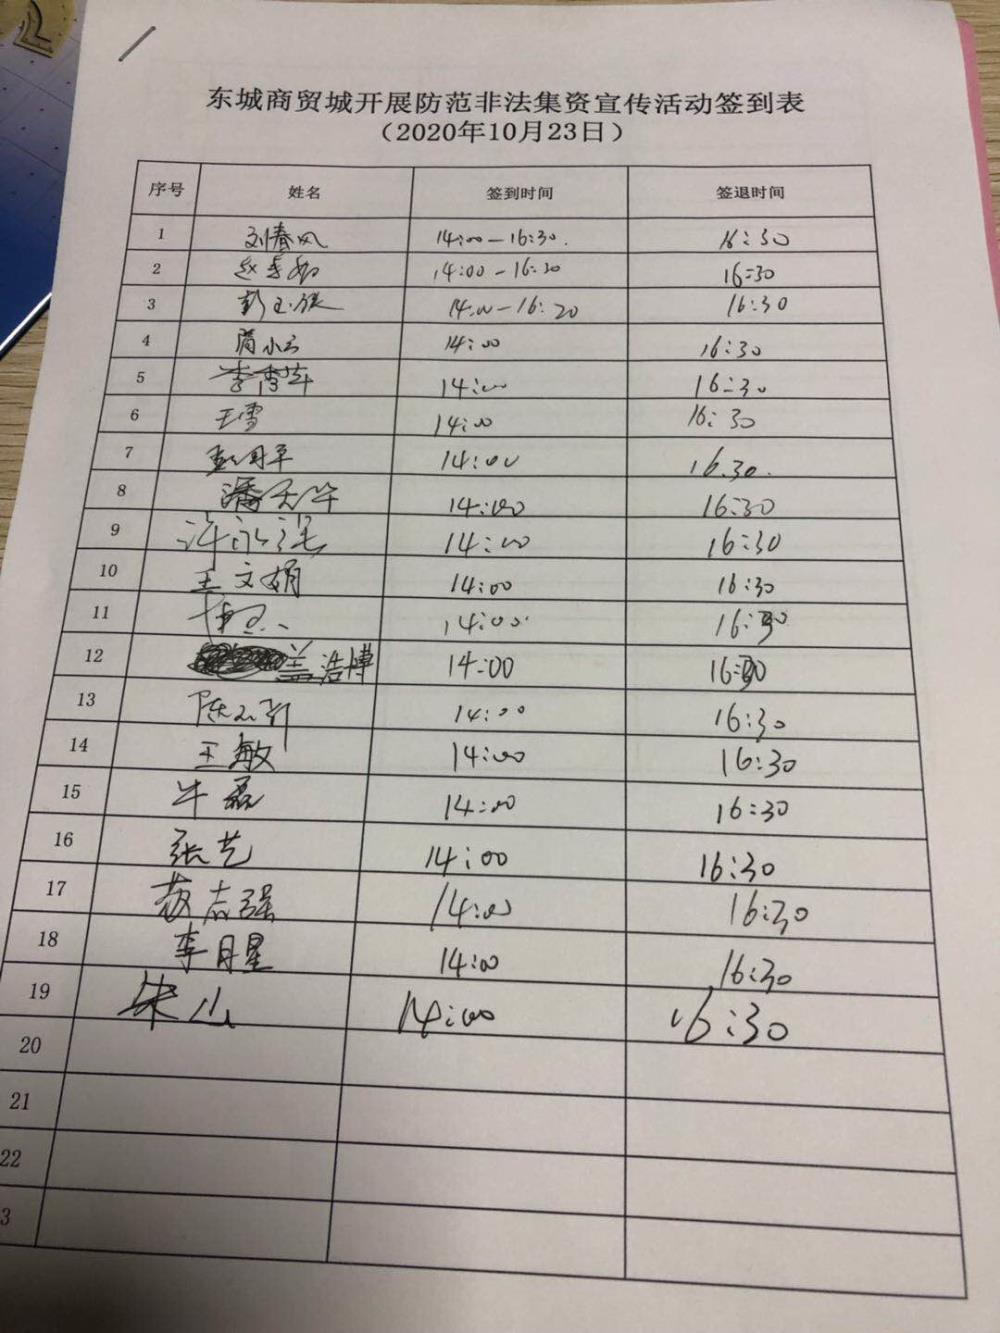 东城商贸城开展防范非法集资宣传活动签到表
（2020年10月23日）
序号 姓名 签到时间 签退时间
1 刘春风 14:00-16:30. 16:30
2 14:00-16:30 16:30
3 彭玉 14:00-16:20 16:30
4 小云 14:00 16:30
5 李雪萍 14:00 16:30
6 王雪 14:00 16:30
7 14:00 16.30.
8 潘 华 14:00 16:30
9 许永强 14:00 16:30
10 王文娟 14:00 16:30
11 14:00 16:30
12 盖浩博 14:00 16:30
13 陈 14:00 16:30
14 王敏 14:00 16:30
15 牛磊 14:00 16:30
16 张艺 14:00 16:30
17 志强 14:00 16:30
18 李月星 14:00 16:30
19 朱山 14:00 16:30
20
21
22
3